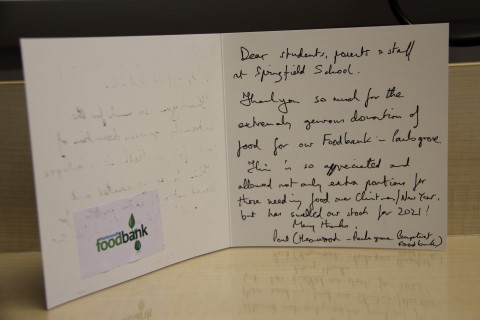 Dear students, parents & staff
at Springfield School.
Thank you so much for the
extremely generous donation of
food for our Foodbank - Paulsgrove.
This is so appreciated and
allowed not only extra portions for
those needing food over Christmas/New Year,
but has swelled our stocks for 2021!
Many thanks
Paul ( - Paulsgrove
Foodbank)
foodbank